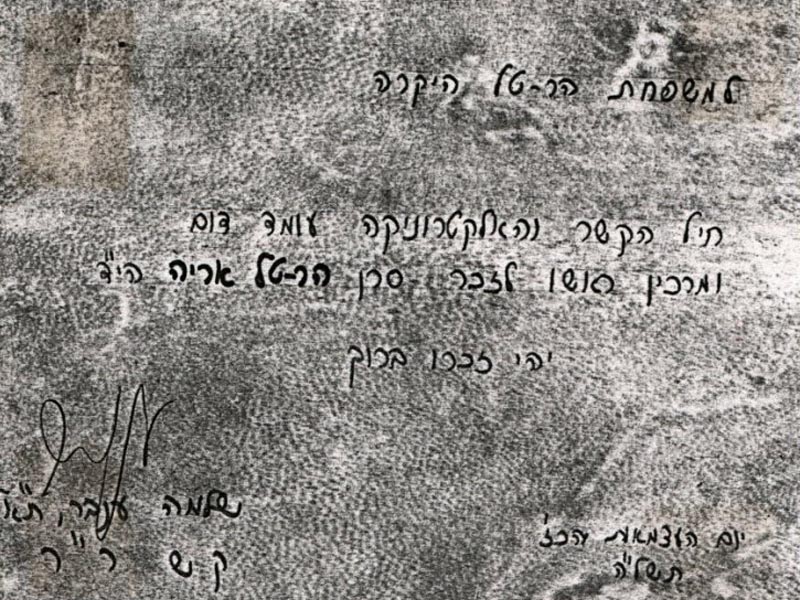 למשפחת הר-טל היקרה
חיל הקשר והאלקטרוניקה עומד דום
ומרכין ראשו לזכר סרן הר-טל אריה הי"ד
יהי זכרו ברוך
שלמה ענבר, תא"ל
ק ש ר " ר
יום העצמאות הכז'
תשל"ה